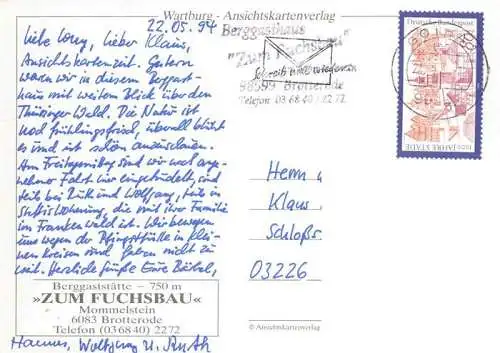 Wartburg - Ansichtskartenverlag
22.05.94
Liebe Lony, lieber Klaus,
Ansichtskartenzeit. Gestern
waren wir in diesem Berggast-
haus mit weitem Blick über den
Thüringer Wald. Die Natur ist
noch frühlingsfrisch, überall blüht
es und ist schön anzuschauen.
Am Freitagmittag sind wir nach ange-
nehmer Fahrt hier eingetrudelt, sind
teils bei Ruth und Wolfgang, teils in
Wohnung, die mit ihrer Familie
im Frankenwald ist. Wir bewegen
uns wegen der Pfingstfülle in klei-
nen Kreisen und fahren nicht zu
weit. Herzliche Grüße Eure Bärbel,
Berggaststätte – 750 m
»ZUM FUCHSBAU«
Mommelstein
6083 Brotterode
Telefon (0 36 840) 22 72
Hannes, Wolfgang u. Ruth
Berggasthaus
"Zum Fuchsbau"
Schreib mal wieder
98599 Brotterode
Telefon 03 68 40 / 22 72
Deutsche Bundespost
1000 JAHRE STADE
Herrn
Klaus
Schloßs
03226
© Ansichtskartenverlag